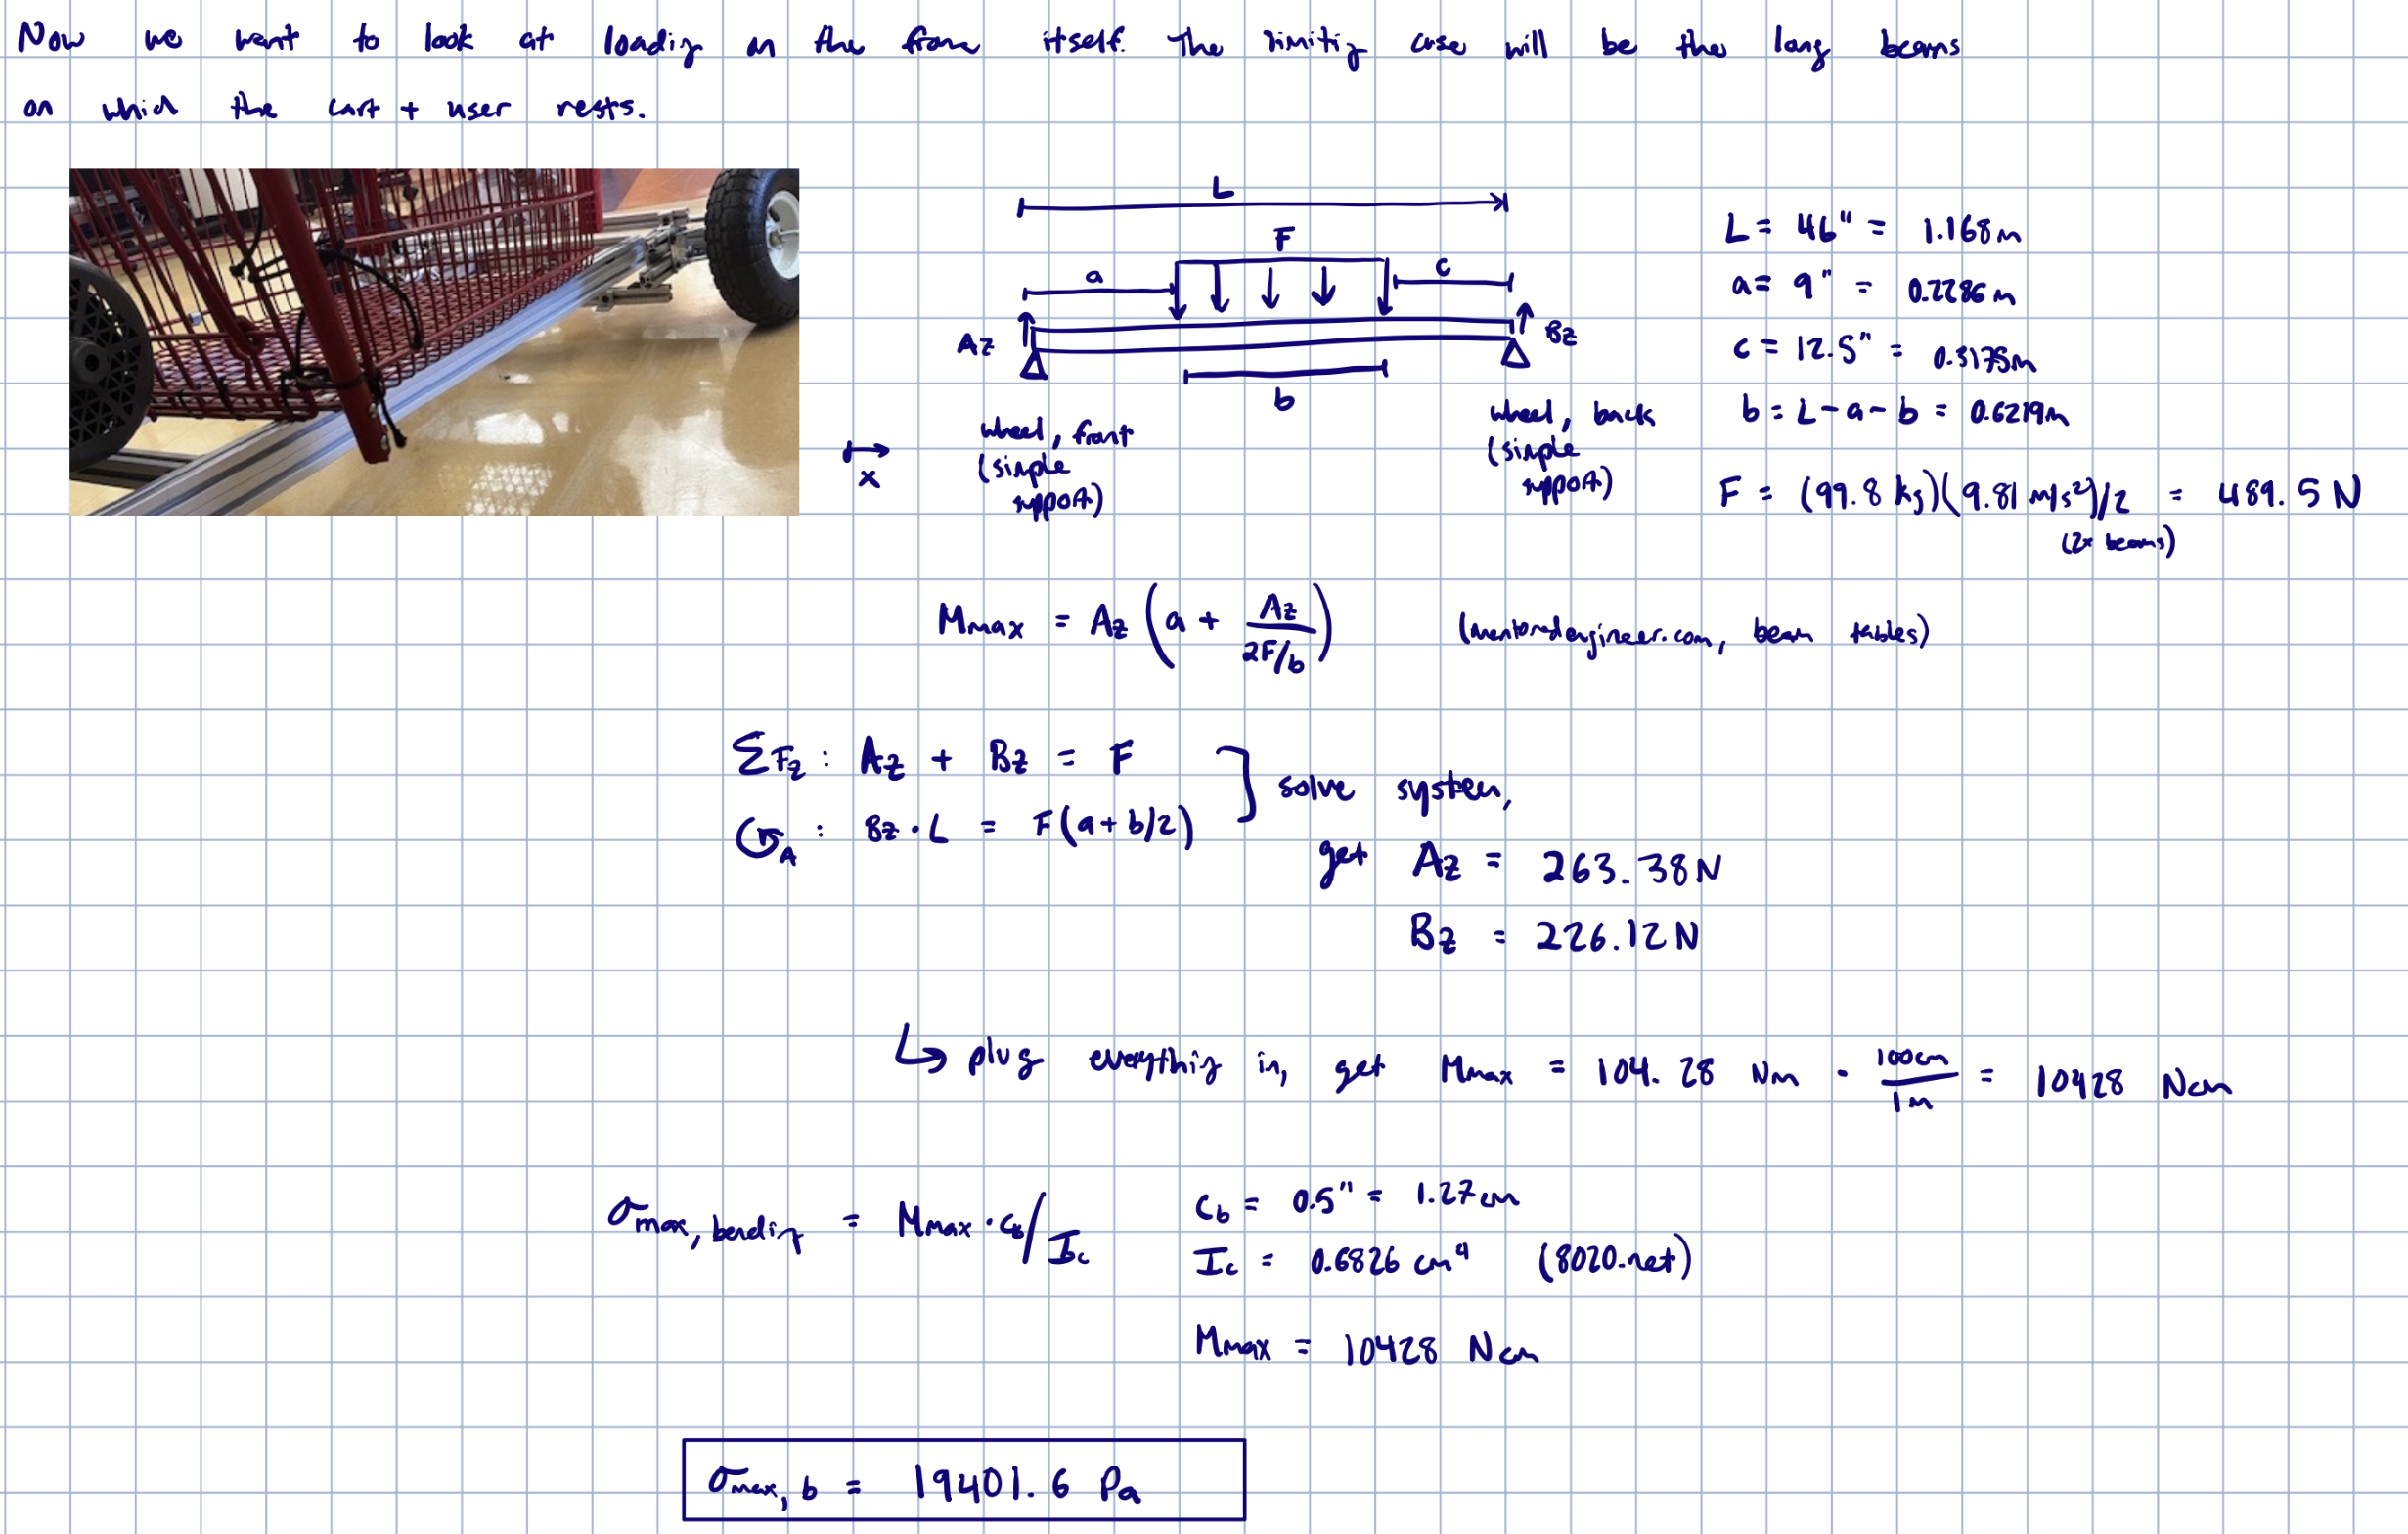 Now we want to look at loading on the frame itself. The limiting case will be the long beams
on which the cart + user rests.
L
F
a
c
Az
Bz
b
wheel, front
(simple
support)
wheel, back
(simple
support)
x
L = 46" = 1.168m
a = 9" = 0.2286m
c = 12.5" = 0.3175m
b = L - a - b = 0.6219m
F = (99.8 kg)(9.81 m/s²)/2 = 489.5 N
(2x beams)
Mmax = Az (a + Az / (2F/b)) (mentoredengineer.com, beam tables)
ΣFz : Az + Bz = F
↺A : Bz · L = F(a + b/2)
solve system,
get Az = 263.38N
Bz = 226.12N
↳ plug everything in, get Mmax = 104.28 Nm · 100cm/1m = 10428 Ncm
σmax, bending = Mmax · cb/Ic
cb = 0.5" = 1.27cm
Ic = 0.6826 cm⁴ (8020.net)
Mmax = 10428 Ncm
σmax, b = 19401.6 Pa